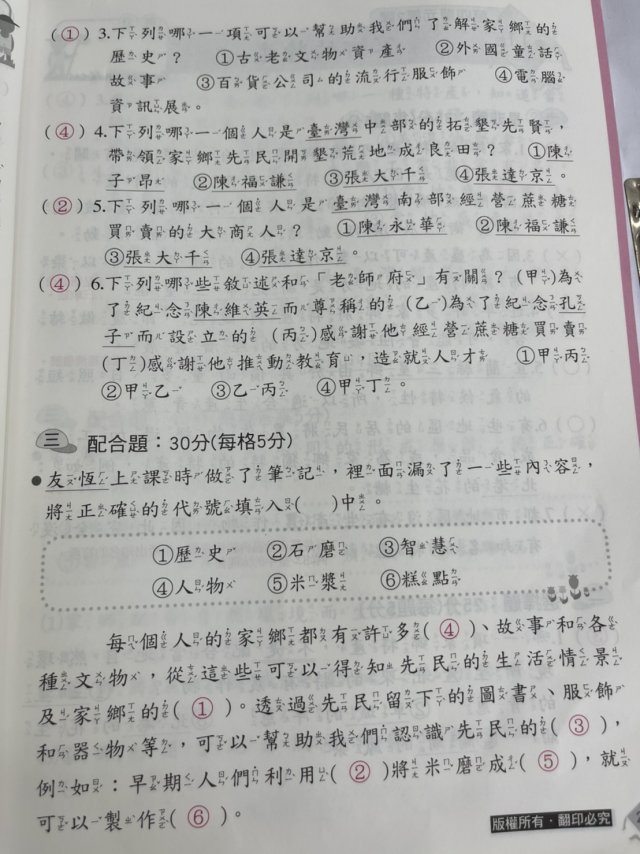 (①)3.下列哪一項可以幫助我們了解家鄉的
歷史? ①古老文物資產 ②外國童話
故事 ③百貨公司的流行服飾 ④電腦
資訊展。
(④)4.下列哪一個人是臺灣中部的拓墾先賢,
帶領家鄉先民開墾荒地成良田? ①陳
子昂 ②陳福謙 ③張大千 ④張達京。
(②)5.下列哪一個人是臺灣南部經營蔗糖
買賣的大商人? ①陳永華 ②陳福謙
③張大千 ④張達京。
(④)6.下列哪些敘述和「老師府」有關?(甲)為
了紀念陳維英而尊稱的 (乙)為了紀念孔
子而設立的 (丙)感謝他經營蔗糖買賣
(丁)感謝他推動教育,造就人才 ①甲丙
②甲乙 ③乙丙 ④甲丁。
三 配合題:30分(每格5分)
●友恆上課時做了筆記,裡面漏了一些內容,
將正確的代號填入( )中。
①歷史 ②石磨 ③智慧
④人物 ⑤米漿 ⑥糕點
每個人的家鄉都有許多(④)、故事和各
種文物,從這些可以得知先民的生活情景
及家鄉的(①)。透過先民留下的圖書、服飾
和器物等,可以幫助我們認識先民的(③),
例如:早期人們利用(②)將米磨成(⑤),就
可以製作(⑥)。
版權所有‧翻印必究